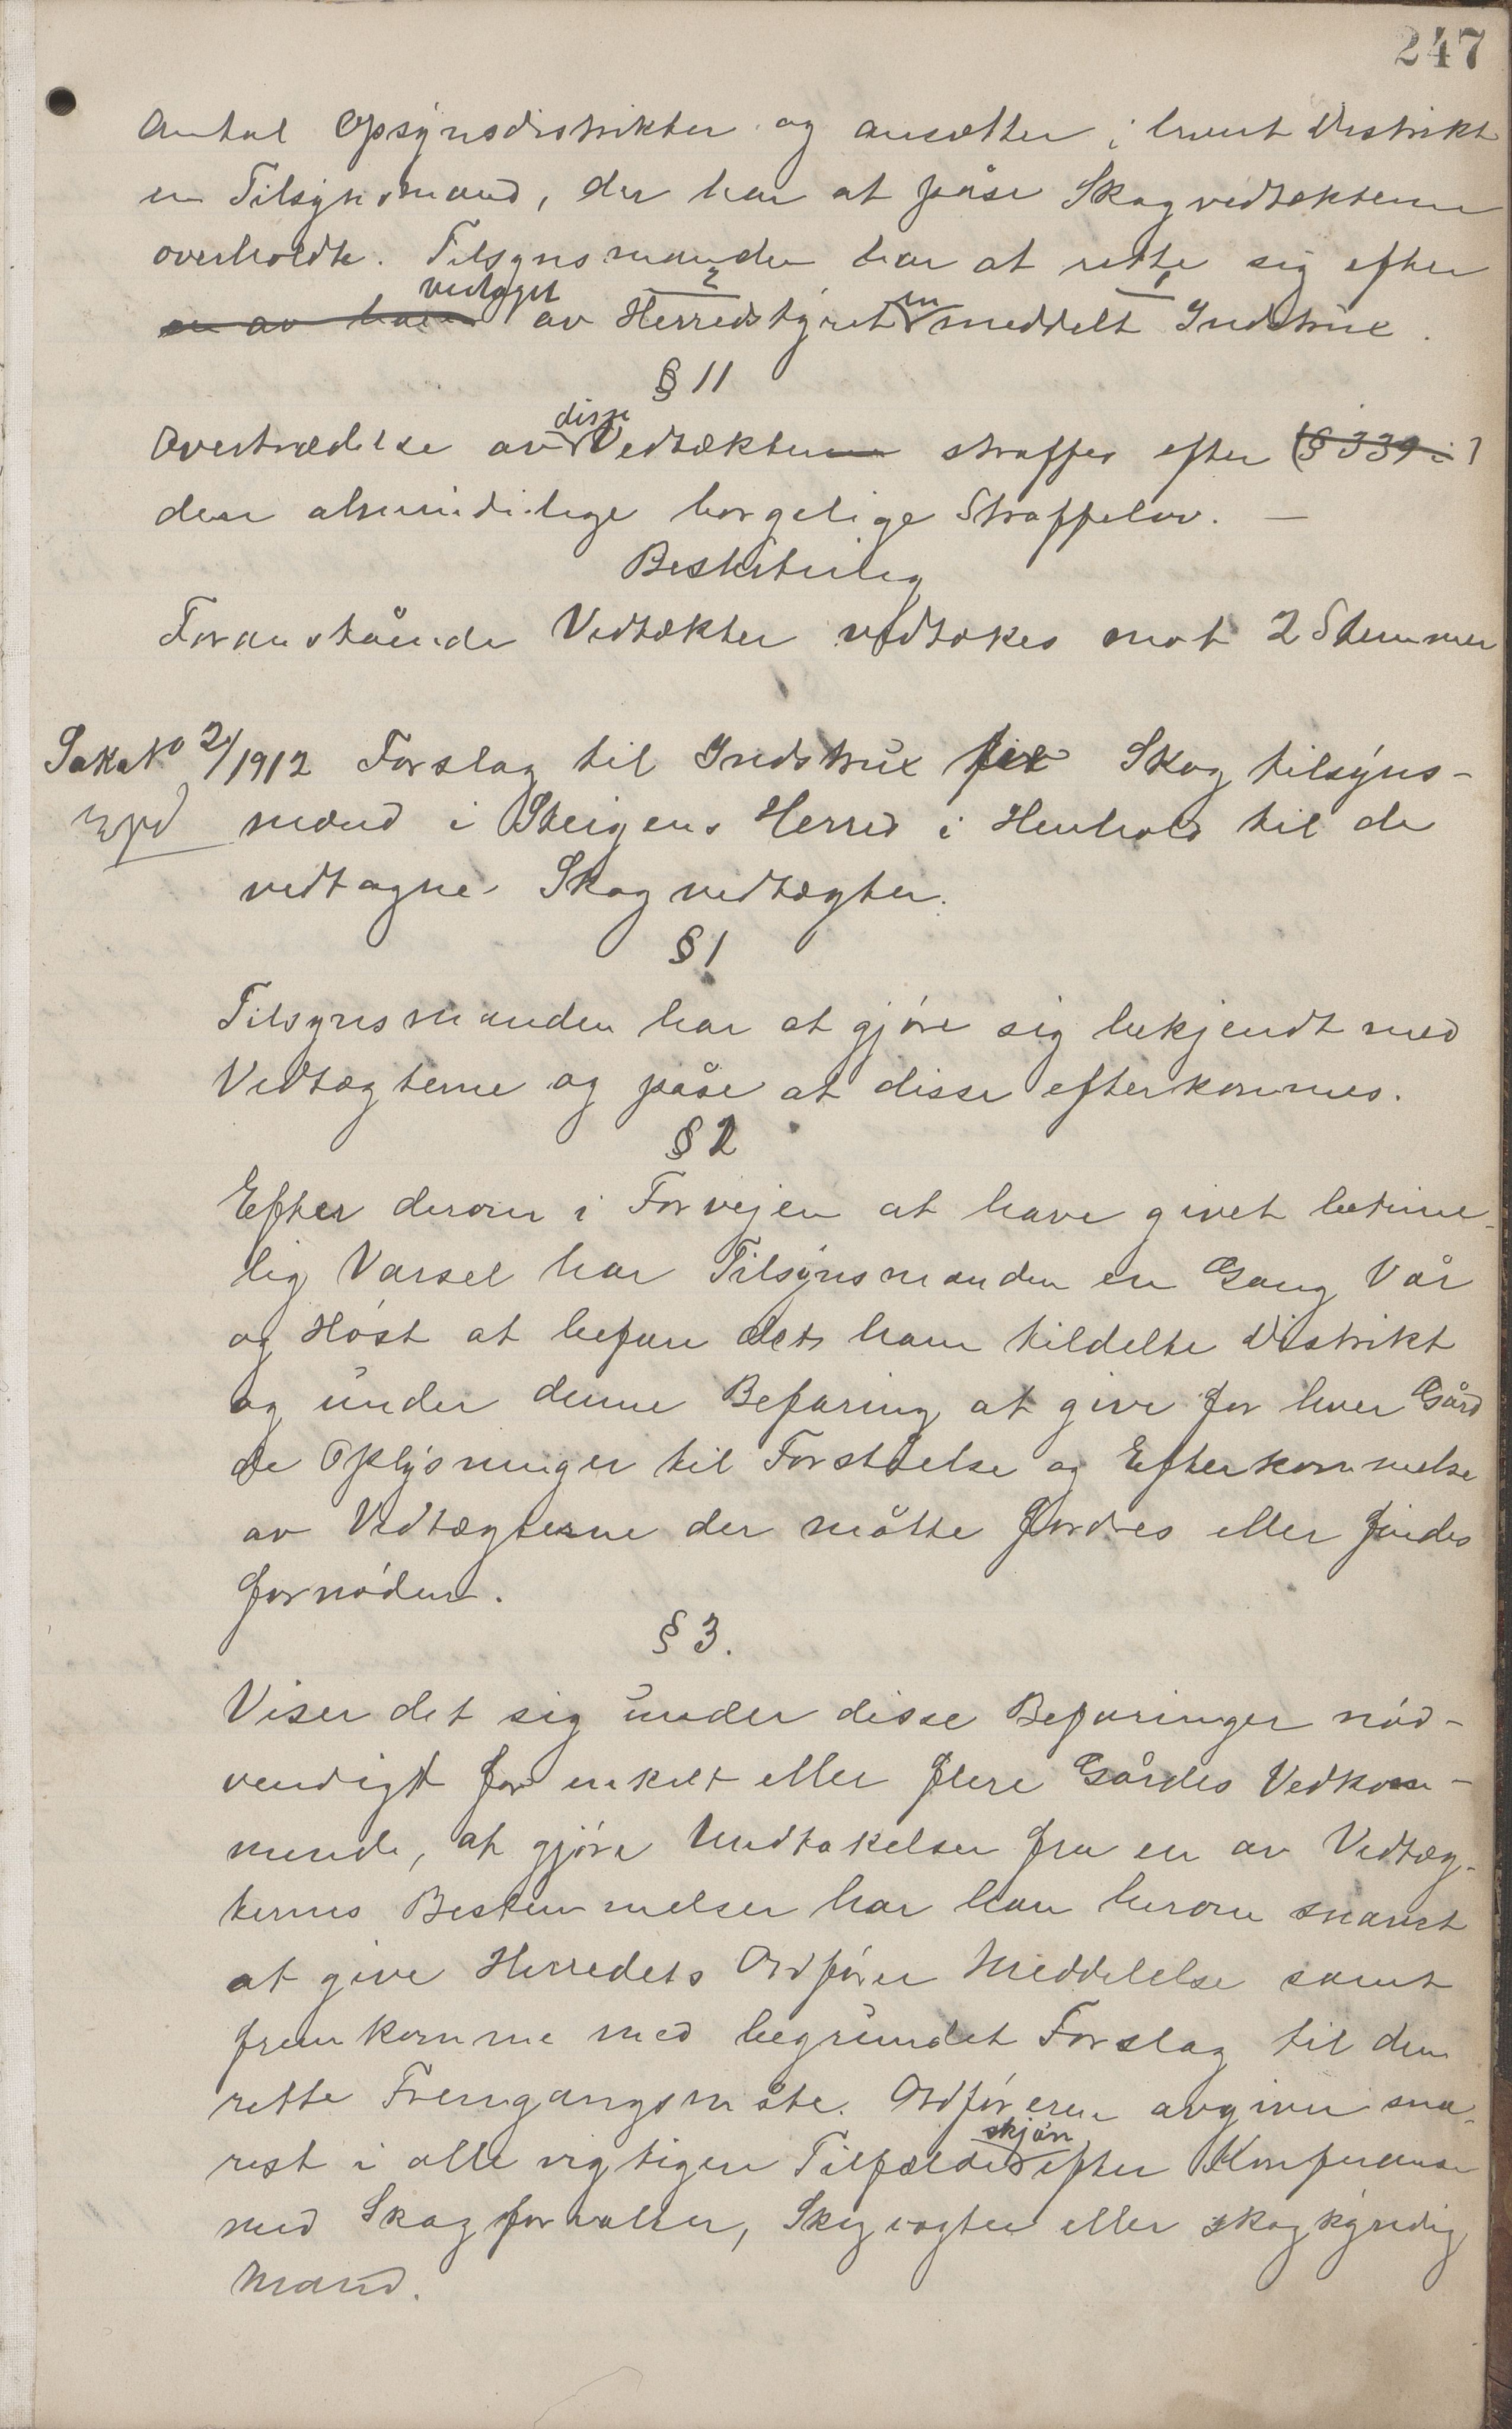 247
Antal Opsynsdistrikter og ansætter i hvert Distrikt
en Tilsynsmand, der har at påse Skogvedtækterne
overholdte. Tilsynsmanden har at rette sig efter
vedtaget 2 en 1
en av av Herredstyret meddelt Indstrux.
§ 11
disse
Overtrædelse av Vedtækterne straffes efter (§ 339 i)
den almindelige borgelige Straffelov. —
Beslutning
Foranstående Vedtækter vedtokes mot 2 Stemmer
Sak No 2/1912 Forslag til Indstrux for Skogtilsyns-
mænd i Steigens Herred i Henhold til de
vedtagne Skogvedtægter.
§ 1
Tilsynsmanden har at gjøre sig bekjendt med
Vedtægterne og påse at disse efterkommes.
§ 2
Efter derom i Forvejen at have givet betime-
lig Varsel har Tilsynsmanden en Gang Vår
og Høst at befare det ham tildelte Distrikt
og under denne Befaring at give for hver Gård
de Oplysninger til Forståelse og Efterkommelse
av Vedtægterne der måtte fordres eller findes
fornøden.
§ 3.
Viser det sig under disse Befaringer nød-
vendigt for enkelt eller flere Gårdes Vedkom-
mende, at gjøre Undtakelser fra en av Vedtæg-
ternes Bestemmelser har han herom snarest
at give Herredets Ordfører Meddelelse samt
fremkomme med begrundet Forslag til den
rette Fremgangsmåte. Ordføreren avgiver sna-
skjøn
rest i alle vigtigere Tilfælder efter Konferanse
med Skogforvalter, Skogvogter eller skogkyndig
Mand.